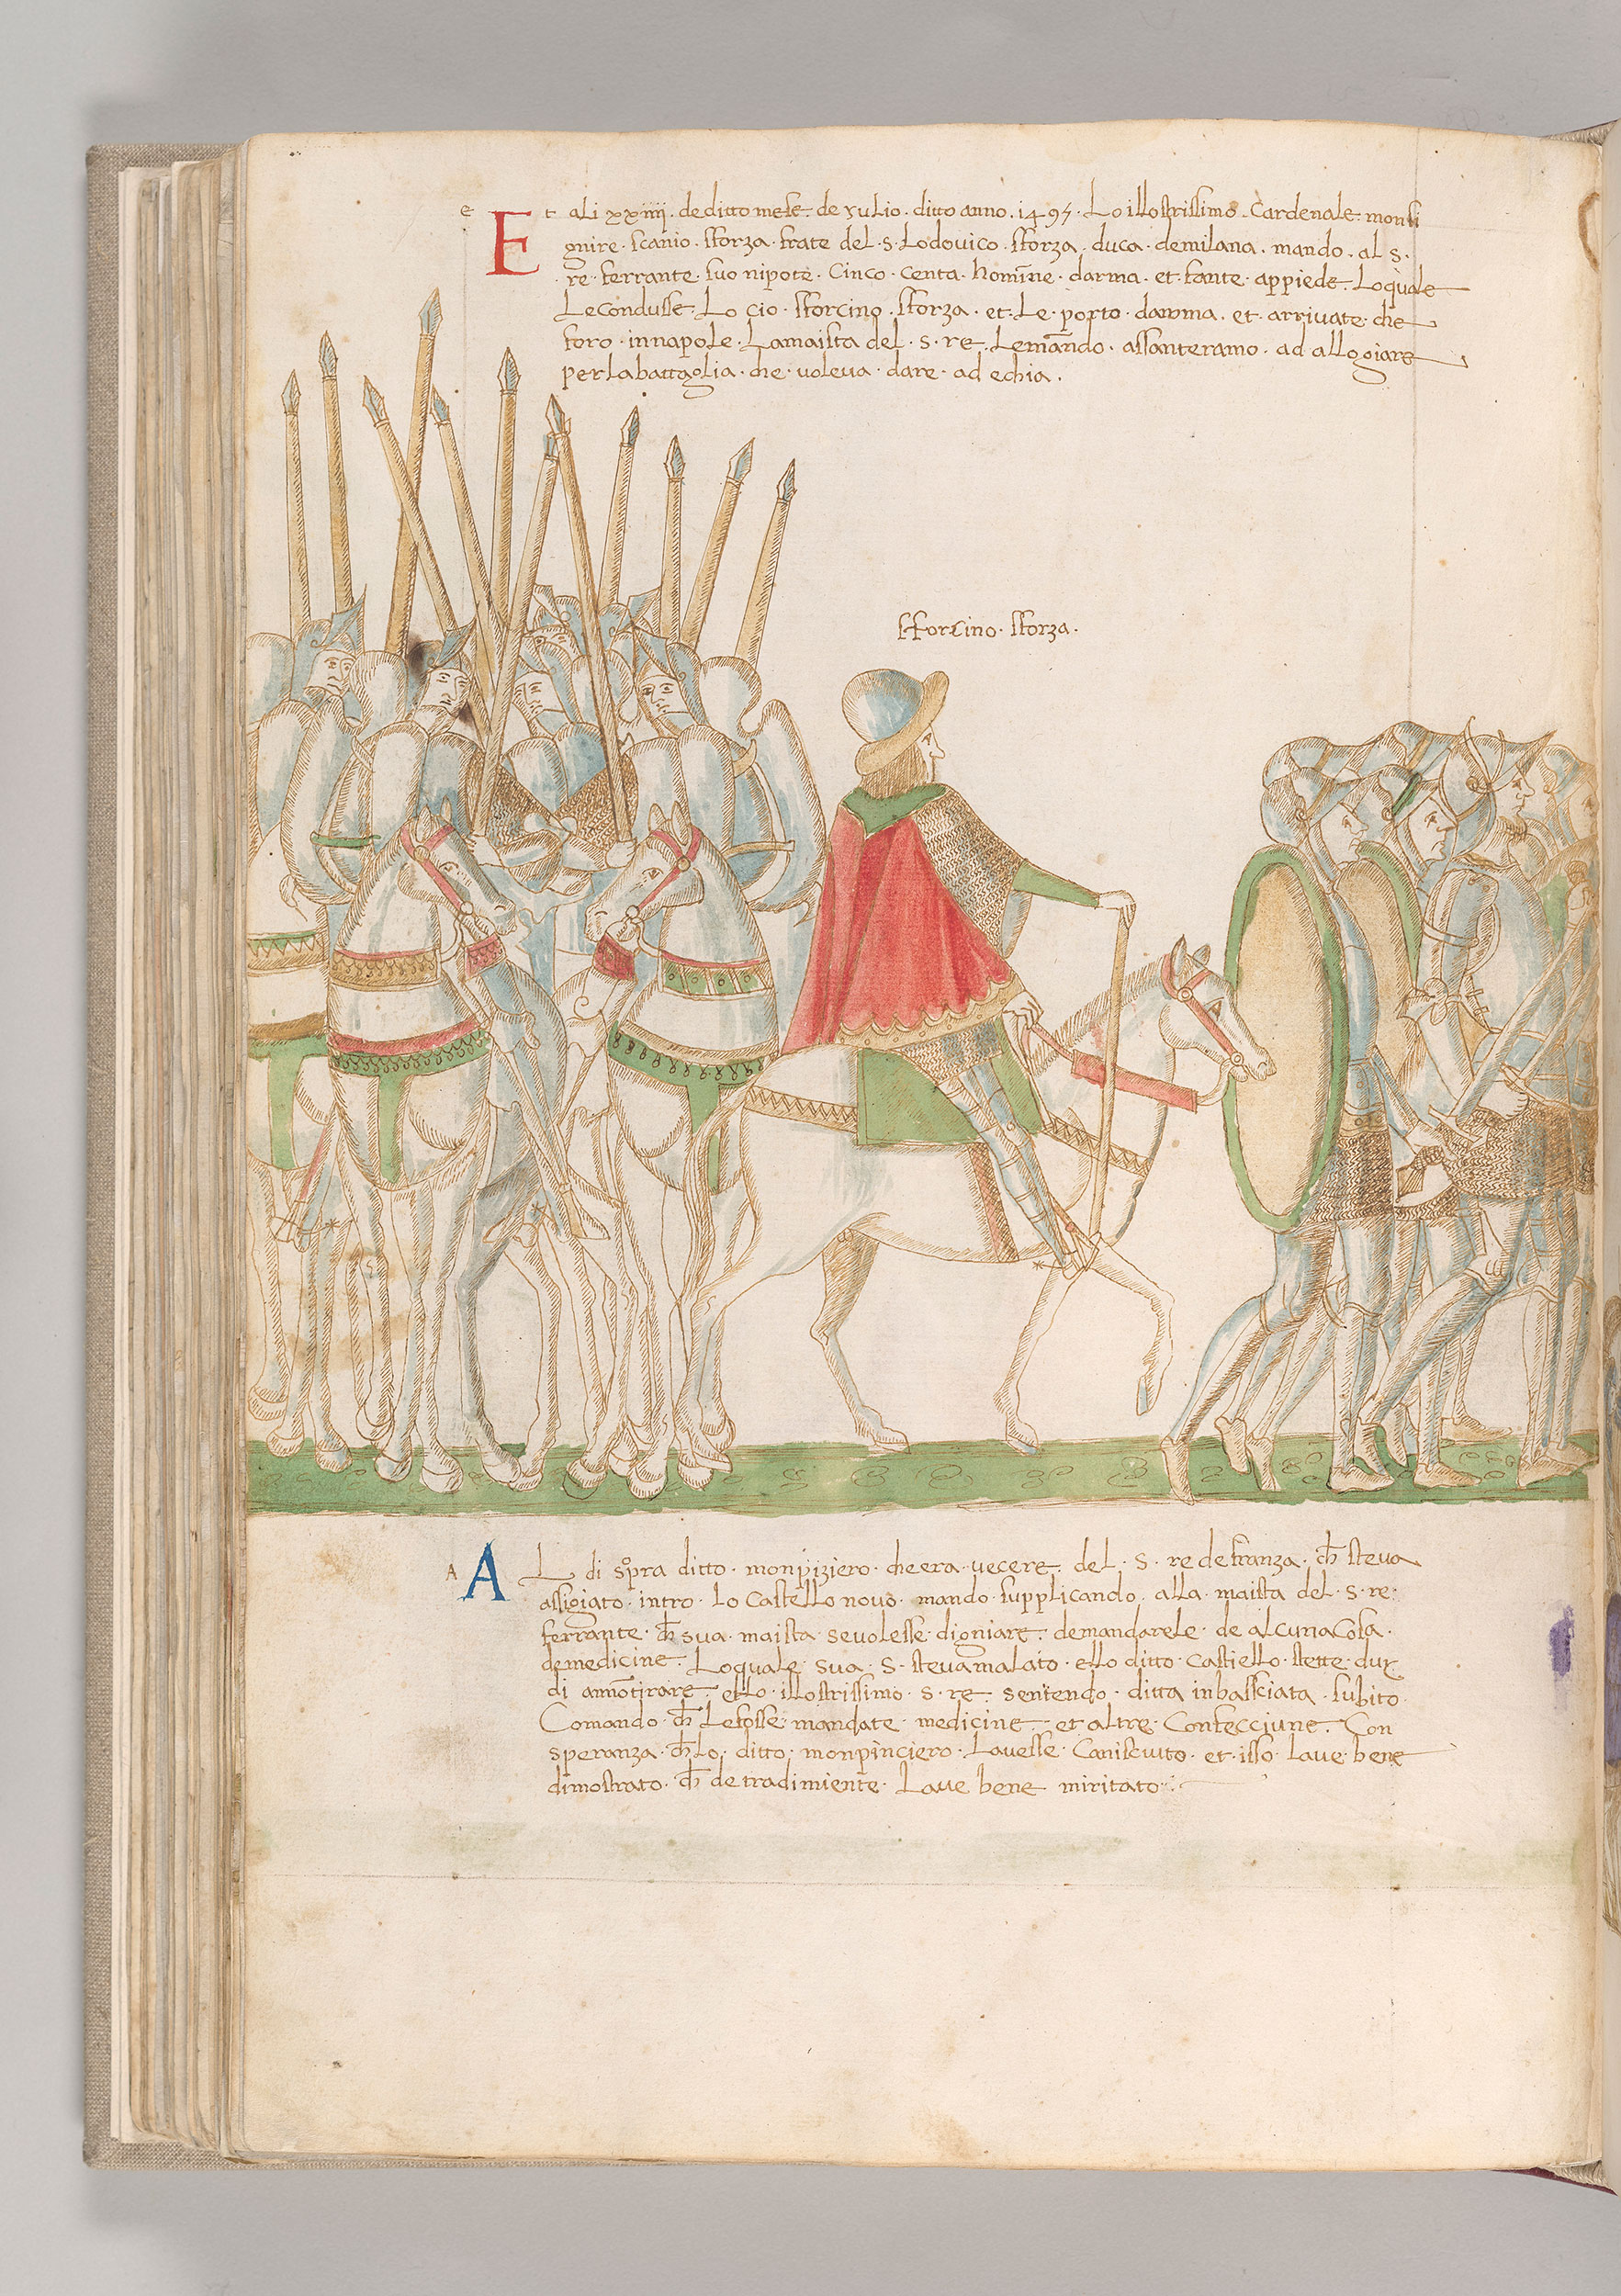 e Et ali xxiiii. de ditto mese. de yulio. ditto anno. 1495. Lo illostrissimo. Cardenale. monsi
gnire. scanio. sforza. frate del. s. Lodovico. sforza. duca. demilana. mando. al s.
re. ferrante. suo nipote. Cinco. centa. homine. darma. et. fante. appiede. Loquale
Lecondusse. Lo cio. sforcino. sforza. et. Le. porto. et. arrivate. che
foro. innapole. Lamaista del. s. re. Lemando. assanteramo. ad alloggiare
perlabattaglia. che. voleva. dare. ad echia.
sforcino. sforza.
A AL di sopra ditto. monpiziero. cheera. vecere. del. s. re de franza. ch̄ steva
assigiato. intro. lo Castello novo. mando. supplicando. alla. maista del. s. re.
ferrante. ch̄ sua. maista. sevolesse. digniare. demandarele. de alcuna Cosa.
demedicine. Loquale. sua. s. stevamalato. ello ditto. Castiello. stette. dui
di. ello. illostrissimo. s. re. sentendo. ditta inbassciata. subito.
Comando. ch̄ Lefosse. mandate. medicine. et altre. Confecciune. Con
speranza. ch̄ lo. ditto. monpinciero. Lavesse. Canisciuto. et. isso. lave. bene
dimostrato. ch̄ de tradimiente. Lave bene miritato.